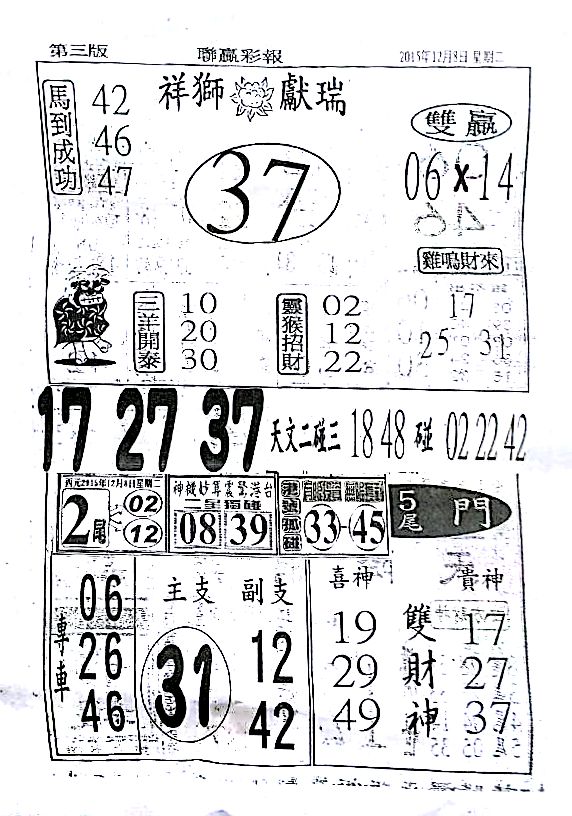 第三版
聯贏彩報
2015年12月8日 星期二
祥獅獻瑞
馬到成功
42
46
47
37
雙贏
06×14
雞鳴財來
17
25 31
三羊開泰
10
20
30
靈猴招財
02
12
22
17 27 37
天文二碰三 18 48 碰 02 22 42
西元2015年12月8日星期二
2尾
02
12
神機妙算震驚港台
08 39
33-45
5尾 門
專車
06
26
46
主支
31
副支
12
42
喜神
19
29
49
雙財神
貴神
17
27
37